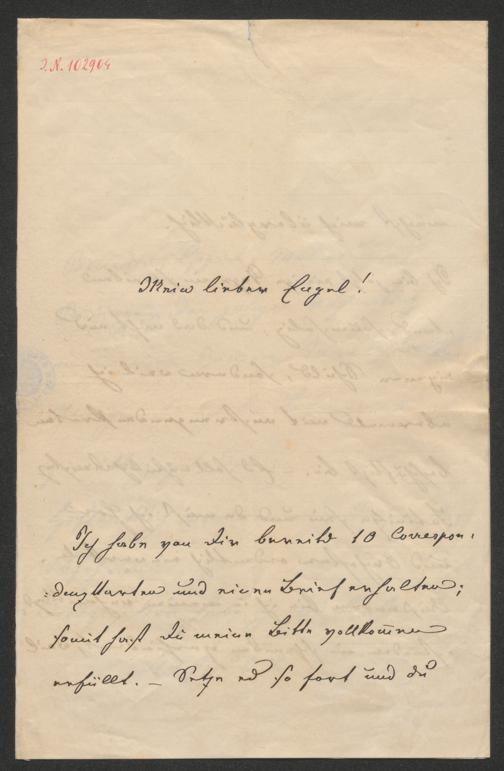 I.N. 102904
Mein lieber Engel!
Ich habe von Dir bereits 10 Correspon-
-denzkarten und einen Brief erhalten;
somit hast Du meine Bitte vollkom̄en
erfüllt. – Setze es so fort und du